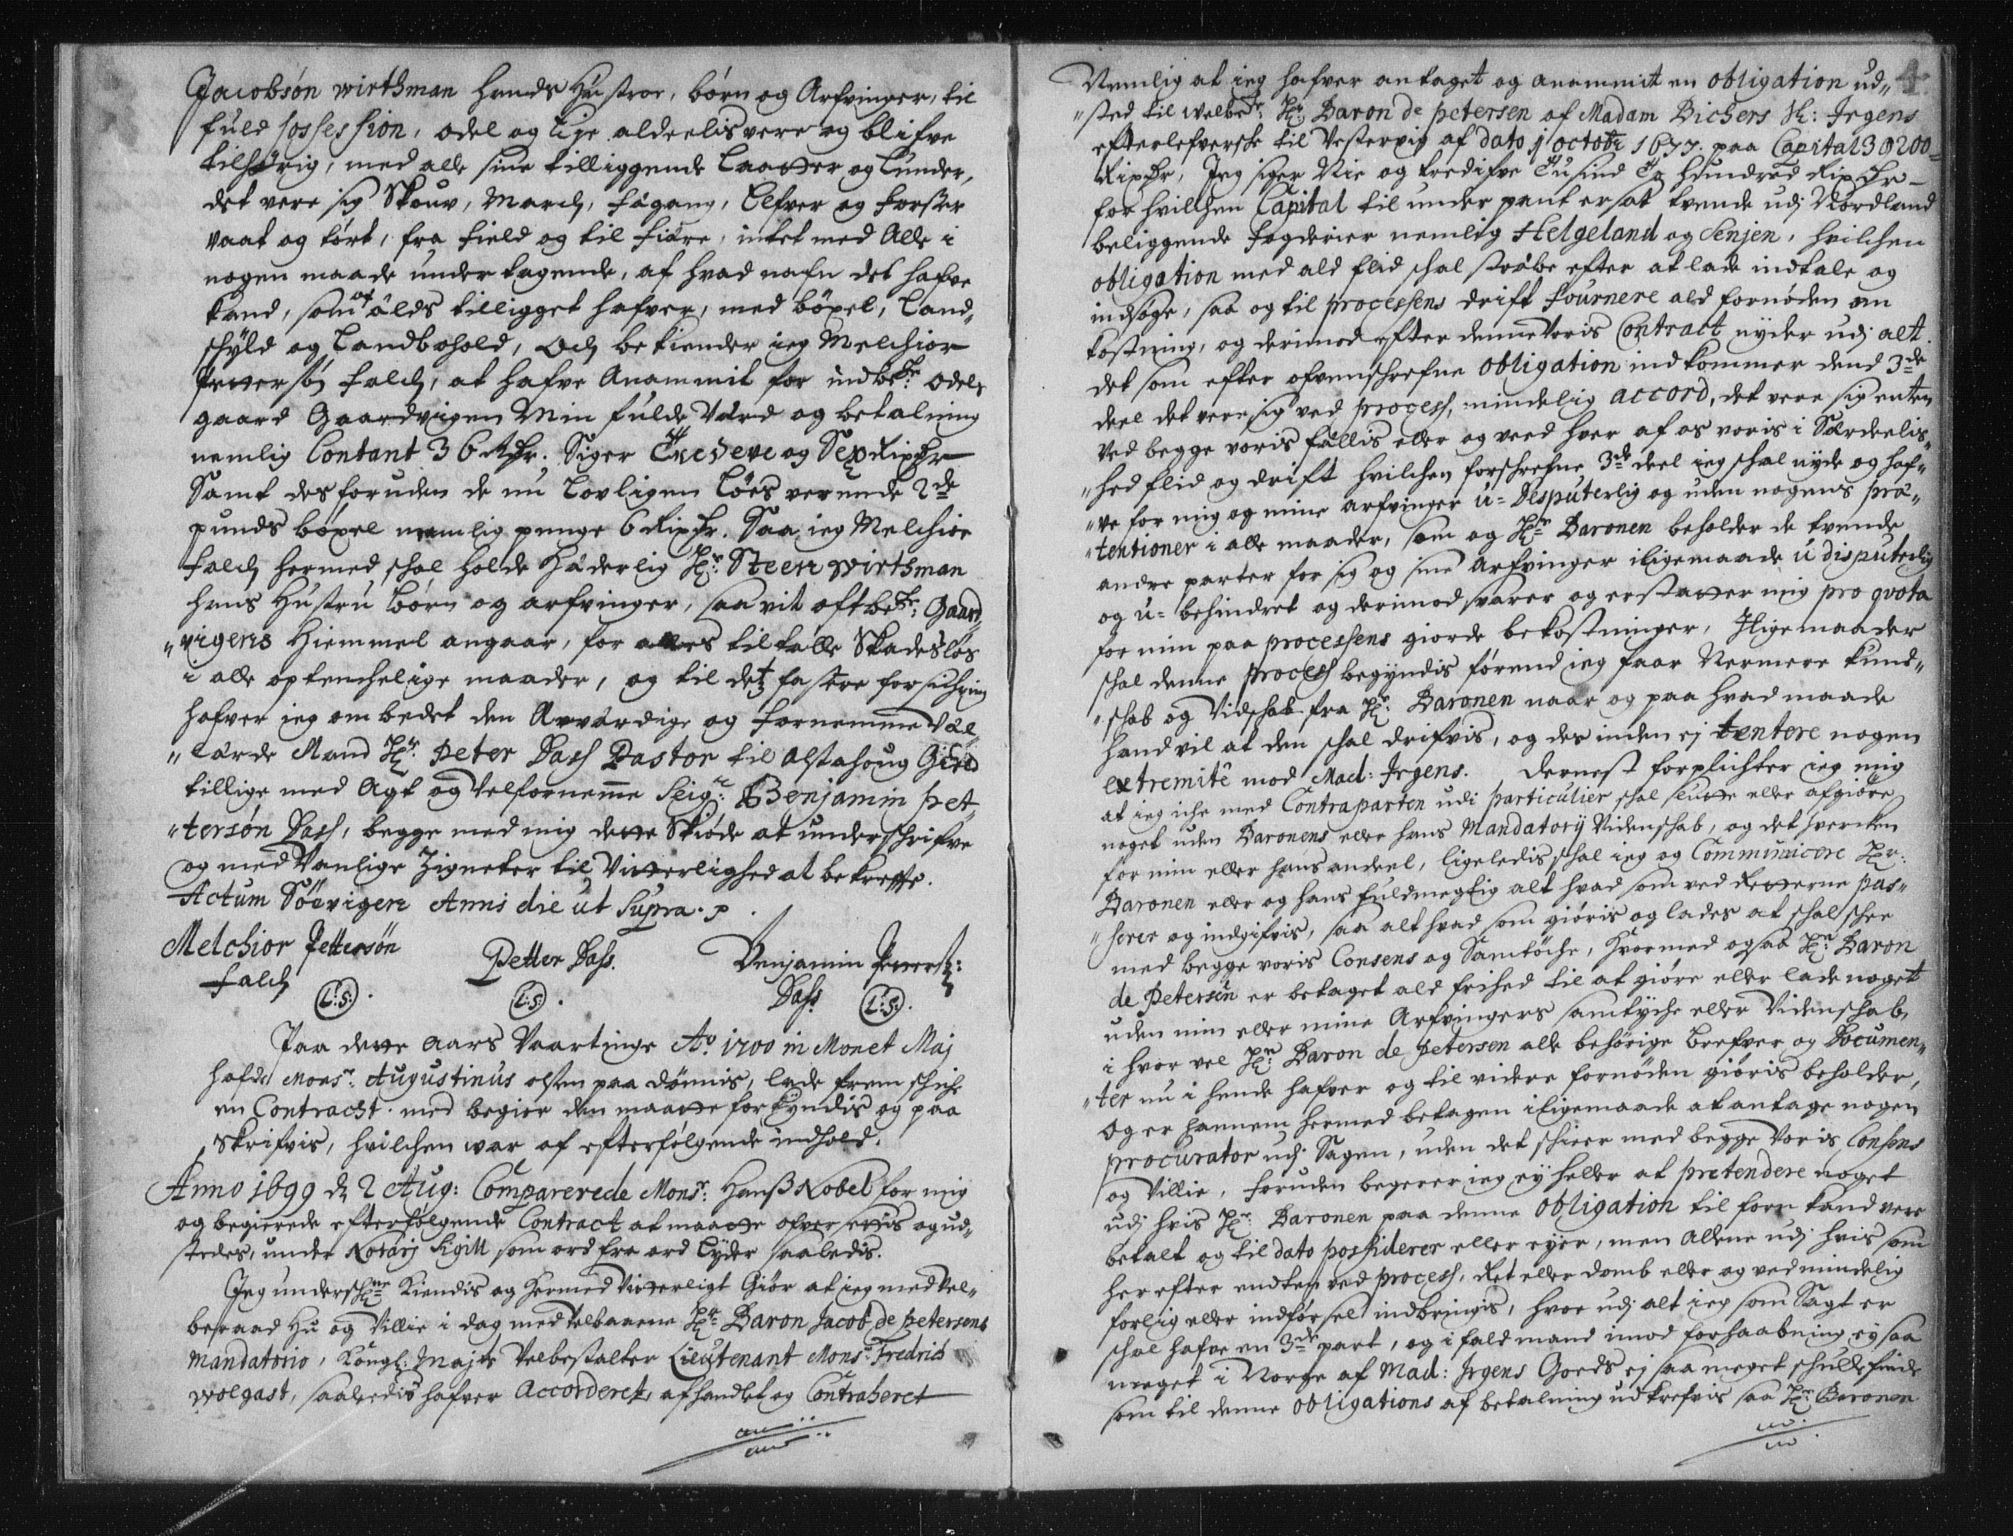 Jacobsøn wirthman hands Hustroe, børn og Arfvinger, til
fuld possession, odel og Eje aldeelis vere og blifve
tilhørig, med alle sine tilliggende Laatter og Lunder,
det vere sig Skouv, March, fægang, Elfver og forsser
vaat og tørt, fra field og til fiære, intet med Alle i
nogen maade undertagende, af hvad nafn det hafve
kand, som af âlds tilligget hafver, med böxel, Land„
schyld og Landbohold, Och bekiender ieg Melchior
Pettersøn falch, at hafve Anammit for indbete: odels
gaard Gaardvigen Min fulde Værd og betalning
nemlig Contant 36 Rdr. Siger Tredeve og Sex Rixdr
Samt desforuden de nu Lovligen Løes verende 2de
punds böxel nemlig penge 6 Rixdr. Saa ieg Melchior
Falch hermed schal holde Hæderlig Hr: Steen wirthman
hans Hustru børn og arfvinger, saa vit oftbete: Gaard
„vigens Hiemmel angaar, for alles tiltalle Skadesløs
i alle optenchelige maader, og til dets fastere forsichring
hafver ieg ombedet den Ærværdige og fornemme Vel„
„lærde Mand Hr: Peter Dass Pastor til Alstahoug Gield
tillige med Agt og velfornemme Seigr: Benjamin Pet„
„tersøn Dass, begge med mig dette Skiøde at underschrifve
og med Vanlige Zigneter til Vitterlighed at bekrefte.
Actum Söevigen Anni die ut Supra.
Melchior Pettersøn Petter Dass. Benjamin Petters:
falch Dass
(L:S:). (L:S:). (L:S:).
Paa dette aars Vaartinge Ao 1700 in Monet Maj
hafde Monsr: Augustinus olsen paa dönnis, lade fremschiche
en Contract med begier den maatte forkyndis og paa
skrifvis, hvilchen war af efterfølgende indhold.
Anno 1699 d 2 Aug: Comparerede Monsr: Hanß Nobel for mig
og begierede efterfølgende Contract at maatte ofversettis og ud„
stedes, under Notarj Sigill som ord fra ord lyder saaledis.
Jeg underschne Kiendis og hermed Vitterligt Giør at ieg med vel„
beraad Hu og Villie i dag med velbaarne Hr: Baron Jacob de Petersens
Mandatorio, Kongl: Majts velbestalter Lieutenant Monsr: Fredrich
wolgast, saaledis hafver Accorderet, afhandlet og Contraheret
4
Nemlig at ieg hafver antaget og anammit en obligation ud„
„sted til welber: Hr: Baron de petersen af Madam Bichers Sl: Irgens
efterlefversche til Vestervig af dato 1 octobr 1677. paa Capital 39200
Rixdr, Jeg siger Nie og tredifve Tusind To hundred Rixdr
for hvilchen Capital til underpant er sat tvende udj Nordland
beliggende fogderier nemlig Helgeland og Senjen, hvilchen
obligation med ald flid schal stræbe efter at lade indtale og
indsøge, saa og til processens drift fournere ald fornøden om
kostning, og derimod efter denne voris Contract nyder udj alt
det som efter ofvenschrefne obligation indkommer dend 3de
deel det vere sig ved process, mindelig accord, det vere sig enten
ved begge voris fællis eller og veed hver af os voris i Særdeelis„
„hed flid og drift hvilchen forschrefne 3de deel ieg schal nyde og haf„
„ve for mig og mine arfvinger u-Desputerlig og uden nogens præ„
„tentioner i alle maader, som og Hr: Baronen beholder de tvende
andre parter for sig og sine Arfvinger iligemaade u disputerlig
og u-behindret og derimod svarer og erstatter mig pro qvota
for min paa processens giorde bekostninger, Iligemaader
schal denne process begyndis førend ieg faar Nermere kund„
„schab og Vidschab fra Hr: Baronen naar og paa hvad maade
hand vil at den schal drifvis, og des inden ej tentere nogen
extremitê mod Mad: Irgens. Dernest forplichter ieg mig
at ieg iche med Contraparten udi particulier schal slutte eller afgiøre
noget uden Baronens eller hans Mandatorij Videnschab, og det hvercken
for min eller hans andeel, ligeledis schal ieg og Communicere Hr:
Baronen eller og hans fuldmegtig alt hvad som ved Retterne pas„
„serer og indgifvis, saa alt hvad som giøris og lades at schal schee
med begge voris Consens og Samtöche, Hvormed ogsaa Hr: Baron
de Petersen er betaget ald frihed til at giøre eller lade noget
uden min eller mine Arfvingers samtyche eller Videnschab,
i hvor vel Hr: Baron de Petersen alle behørige Brefver og Documen„
„ter nu i hende hafver og til videre fornøden giøris beholder,
Og er hannem hermed betagen iligemaade at antage nogen
procurator udj Sagen, uden det schier med begge Voris Consens
og Villie, foruden begerer ieg ey heller at pretendere noget
udj hvis Hr: Baronen paa denne obligation til forn kand vere
betalt og til dato possiderer eller eyer, men Allene udj hvis som
her efter endten ved process, Ret eller domb eller og ved mindelig
forlig eller indførsel indbringis, hvor udj alt ieg som Sagt er
schal hafve en 3de part, og i fald mand imod forhaabning ej saa
meget i Norge af Mad: Irgens Goeds ej saa meget schulle finde
som til denne obligations afbetalning udkrefvis saa Hr: Baronen